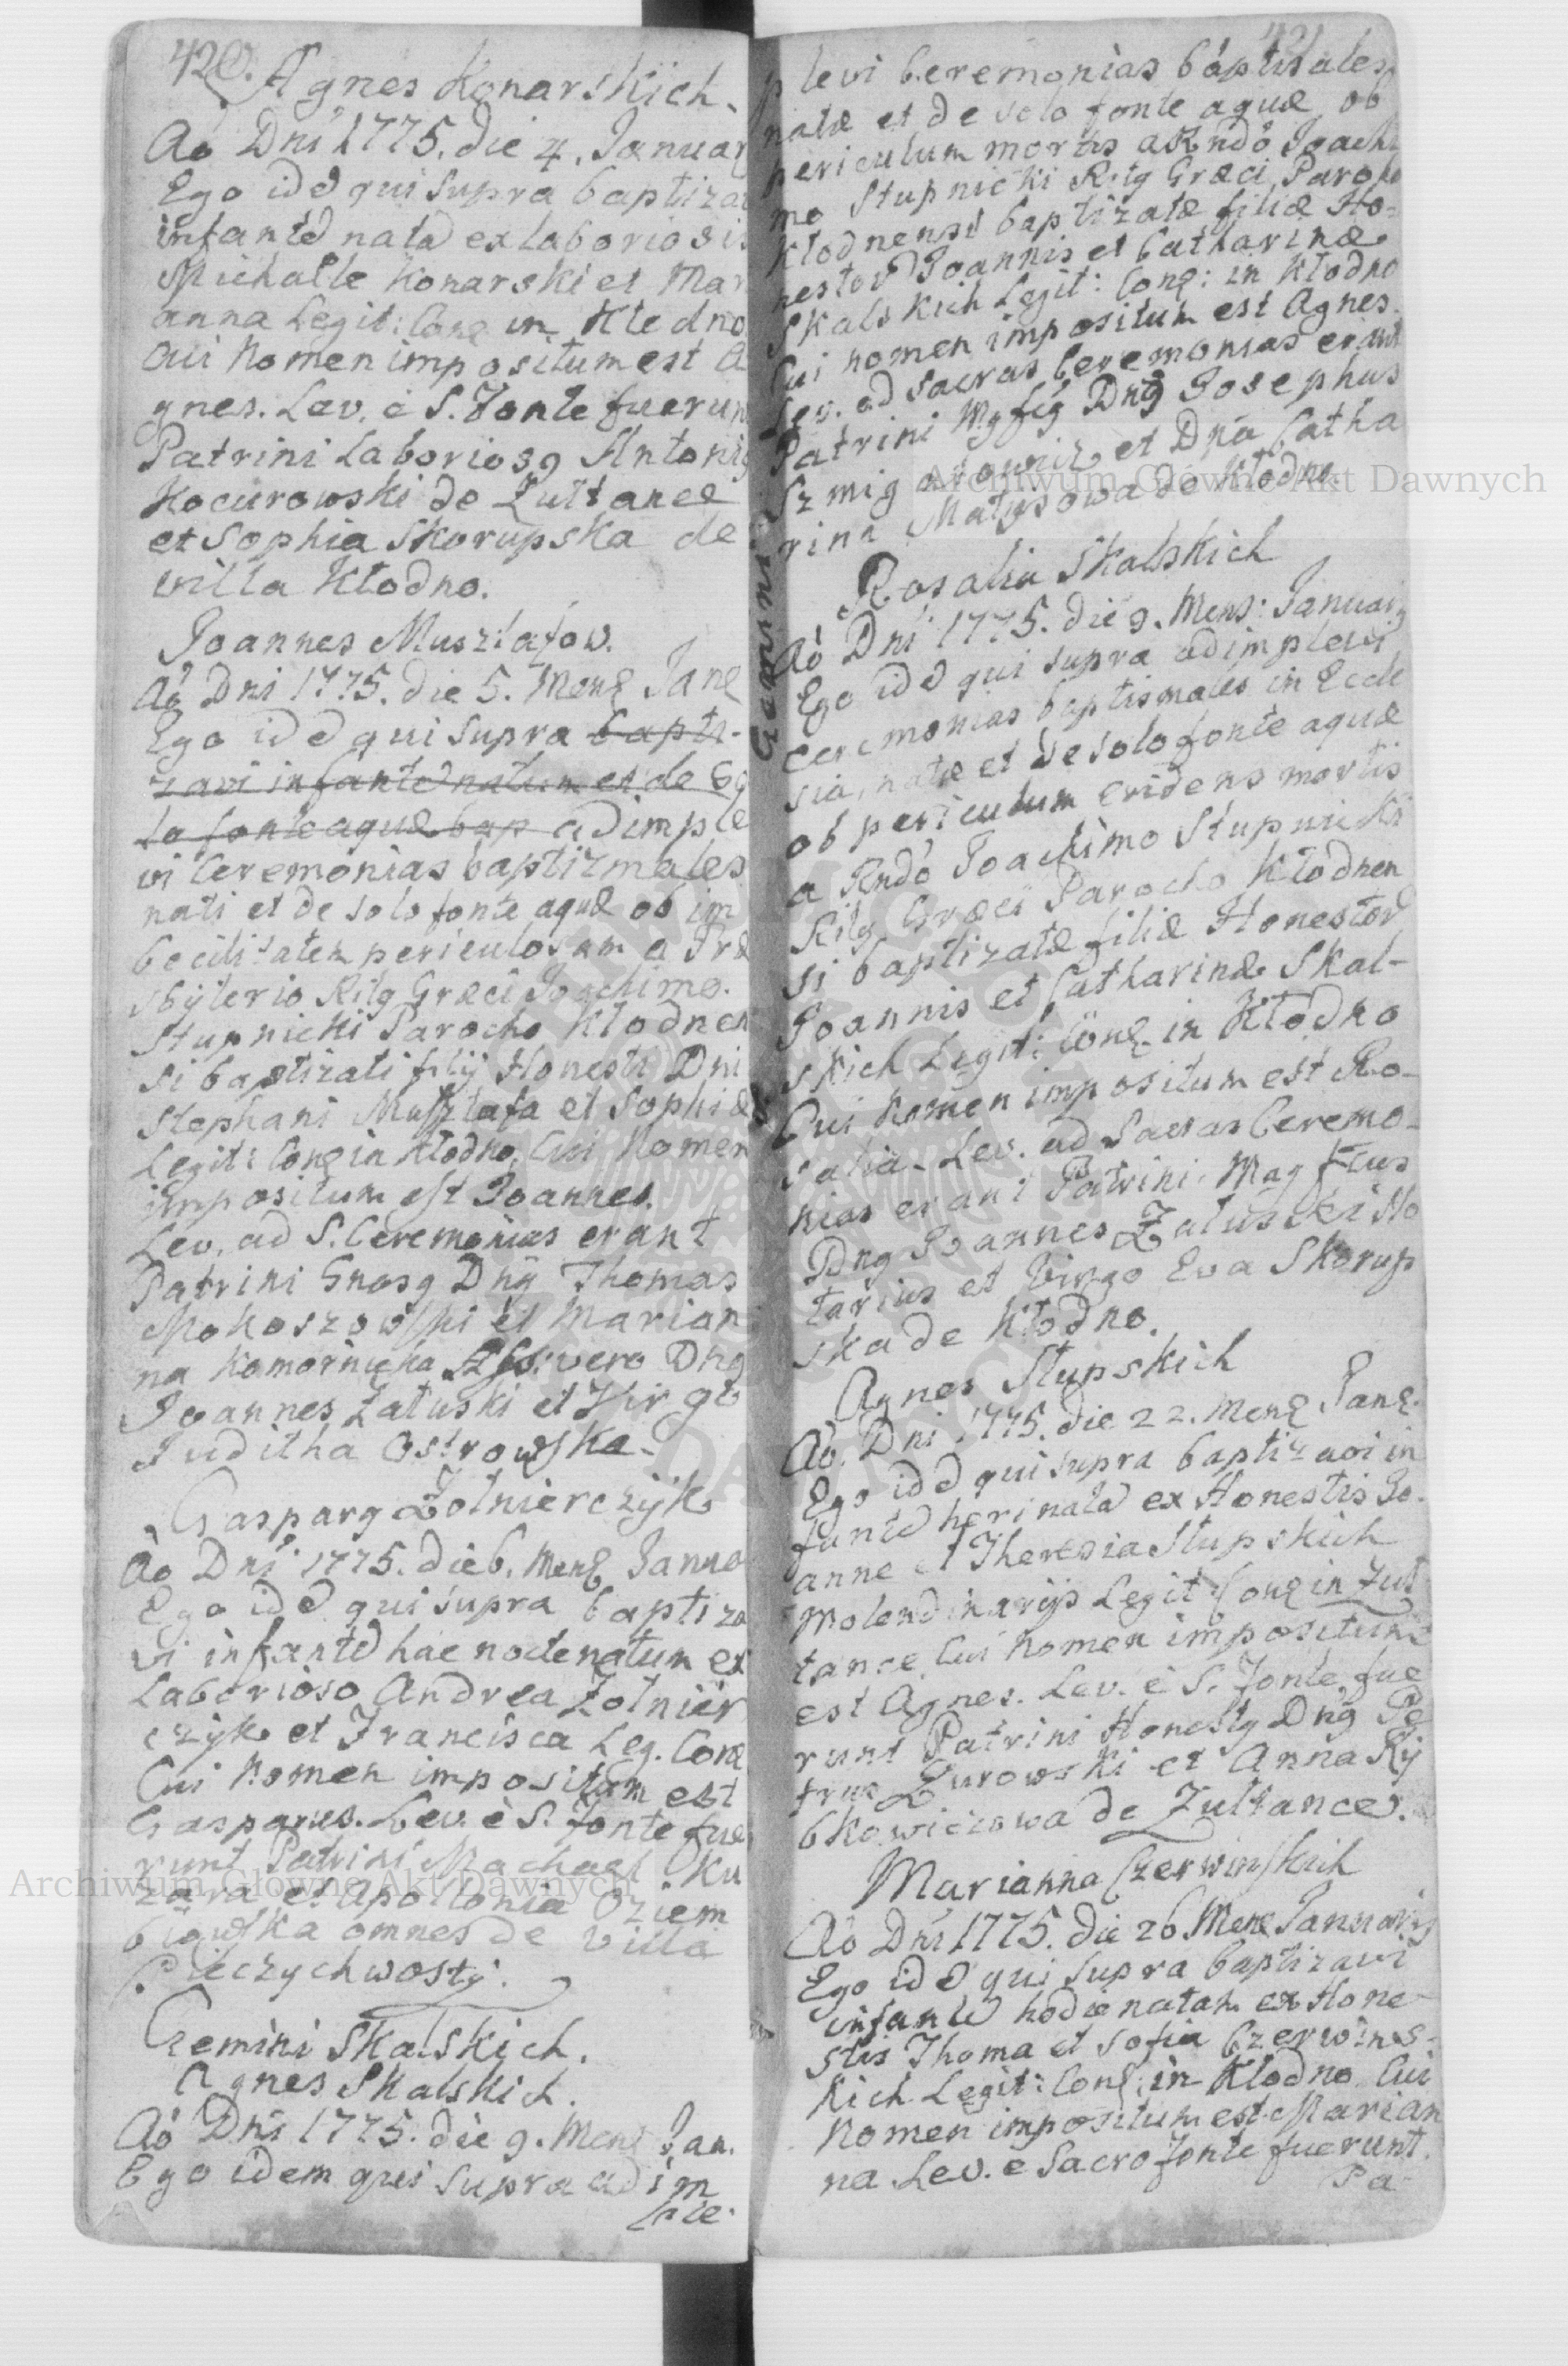 420.
Agnes Konarskich.
Aō Dni 1775. die 4. Januar
Ego idē qui supra baptiza
infantē natā ex laboriosis
Michaele Konarski et Mar
anna Legit: Conj in Kłodno
Cui Nomen impositum est A
gnes. Lev. è S. Fonte fuerun
Patrini Laborios9 Antoni9
Kocurowski de Zułtance
et Sophia Skorupska de
villa Kłodno.
Joannes Musztafow.
Aō Dni 1775. die 5. Mens Jan
Ego idē qui supra bapti-
zavi infantē natum et de so
lo fonte aquæ bap adimple
vi Ceremonias baptizmales
nati et de solo fonte aquæ ob im
becilitatem periculosam a Præ
sbÿterio Rit9 Græci Joachimo.
Stupnicki Parocho Kłodnen
si baptizati filij Honesti Dni
Stephani Musztafa et Sophiæ
Legit: Conj in Kłodno. Cui Nomen
impositum est Joannes.
Lev. ad S. Ceremonias erant
Patrini Gnos9 Dnij Thomas
Mokoszowski et Marian
na Komornicka Ass: vero Dn9
Joannes Załuski et Virgo
Juditha Ostrowska.
Caspar9 Zołnierczÿk
Aō Dni 1775. die 6. Mens Janua
Ego idē qui supra baptiza
vi infantē hac nocte natum ex
Laborioso Andrea Zołnier
czÿk et Francisca Leg. Conj
Cui Nomen impositum est
Casparus. Lev. è S. fonte fue
runt Patrini Machael Ku
zara et Apollonia Oziem
błowska omnes de Villa
Pieczychwosty.
Gemini Skalskich.
Agnes Skalskich.
Aō Dni 1775. die 9. Mens Jan.
Ego idem qui supra adim
ple-
421
plevi Ceremonias baptisales
natæ et de solo fonte aquæ ob
periculum mortis a Rndo Joachi
mo Stupnicki Rit9 Græci Parocho
Kłodnensi baptizatæ filiæ Ho-
nestorū Joannis et Catharinæ
Skalskich Legit: Conj: in Kłodno
Cui nomen impositum est Agnes.
Lev. ad sacras Ceremonias erant
Patrini Mgfc9 Dn9 Josephus
Szmigarowicz et Dna Catha
rina Matysowa de Kłodno.
Gemini
Rosalia Skalskich
Aō Dni 1775. die 9. Mens: Januarij
Ego idē qui supra adimplevi
ceremonias baptismales in Eccle
sia, natæ et de solo fonte aquæ
ob periculum evidens mortis
a Rndo Joachimo Stupnicki
Rit9 Græci Parocho Kłodnen
si baptizatæ filiæ Honestorū
Joannis et Catharinæ Skal-
skich Legit: Conj. in Kłodno
Cui Nomen impositum est Ro-
salia. Lev. ad Sacras Ceremo-
nias erant Patrini. Magfcus
Dn9 Joannes Załuski No
tarius et Virgo Eva Skorup
ska de Kłodno.
Agnes Słupskich
Aō. Dni 1775. die 22. Mens Jan.
Ego idē qui supra baptizavi in
fantē heri natā ex Honestis Jo-
anne et Theresia Słupskich
Molendinarijs Legit: Conj in Zuł
tance, Cui Nomen impositum
est Agnes. Lev. è S. Fonte fue
runt Patrini Honest9 Dn9 Pe
trus Zurowski et Anna Rÿ
bkowiczowa de Zułtance.
Marianna Czerwinskich
Aō Dni 1775. die 26 Mens Januarij
Ego idē qui supra baptizavi
infantē hodie natam ex Hone-
stis Thoma et Sofia Czerwins-
kich Legit: Conj: in Kłodno Cui
Nomen impositum est Marian
na Lev. e Sacro fonte fuerunt
Pa-
Archiwum Główne Akt Dawnych
Archiwum Główne Akt Dawnych